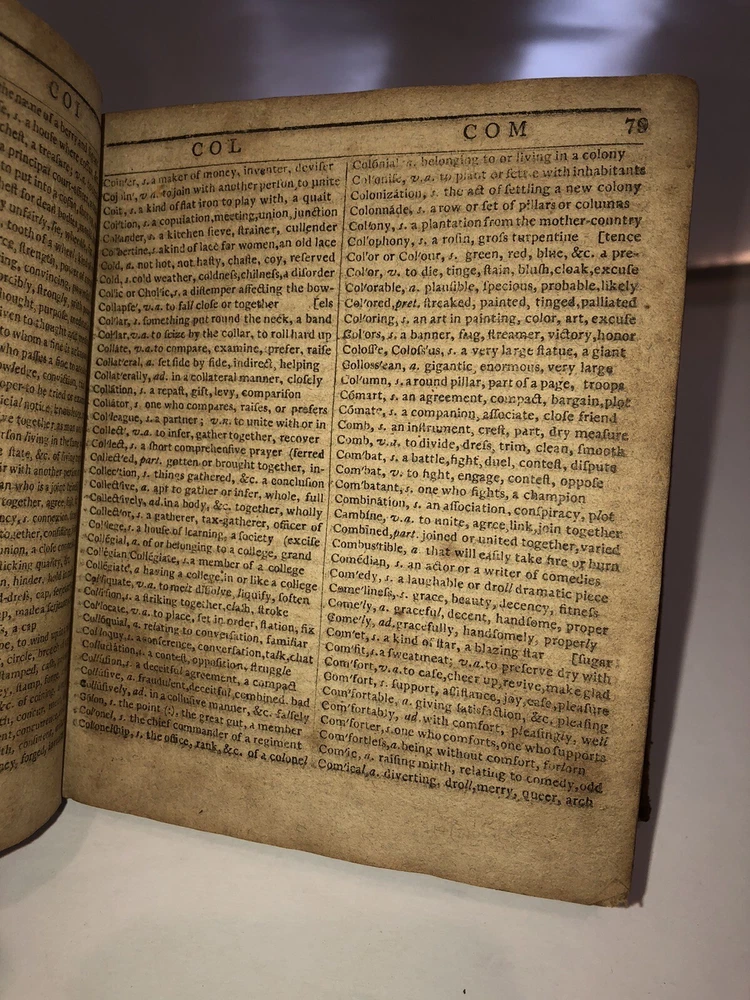 COI
the name of a berry and
s. a house where
chest, a treasure,
a principal court
to put into a
chest for dead bodies
unfairly,
tooth of a wheel,
ce, strength, power
ing, convincing,
orcibly, strongly, with
hought, purpose,
iven to thought and
to whom a fine is
who passes a fine to
owledge,
oper to be tried or
icial notice,
ve together as man
rson living in the same
state, &c. of living
ir with another person
an who is a joint
together, agree
ncy, s. connexion
together,
union, a close
licking quality,
n, hinder, hold
d-dress, cap,
p, made a
s, a cap
COL
Coin'er, s. a maker of money, inventer, deviser
Cojoin', v.a. to join with another person, to unite
Coit, s. a kind of flat iron to play with, a quait
Coi'tion, s. a copulation, meeting, union, junction
Col'ander, s. a kitchen sieve, strainer, cullender
Col'bertine, s. a kind of lace for women, an old lace
Cold, a. not hot, not hasty, chaste, coy, reserved
Cold, s. cold weather, coldness, chilness, a disorder
Col'ic or Chol'ic, s. a distemper affecting the bow-
Collapse', v.a. to fall close or together [els
Col'lar, s. something put round the neck, a band
Col'lar, v.a. to seize by the collar, to roll hard up
Collate, v.a. to compare, examine, prefer, raise
Collat'eral, a. set side by side, indirect, helping
Collat'erally, ad. in a collateral manner, closely
Collātion, s. a repast, gift, levy, comparison
Collātor, s. one who compares, raises, or prefers
Col'league, s. a partner; v.n. to unite with or in
Collect', v.a. to infer, gather together, recover
Col'lect, s. a short comprehensive prayer (ferred
Collect'ed, part. gotten or brought together, in-
Collec'tion, s. things gathered, &c. a conclusion
Collec'tive, a. apt to gather or infer, whole, full
Collec'tively, ad. in a body, &c. together, wholly
Collec'tor, s. a gatherer, tax-gatherer, officer of
Col'lege, s. a house of learning, a society (excise
Collēgial, a. of or belonging to a college, grand
Collēgian, Collēgiate, s. a member of a college
Collēgiate, a having a college, in or like a college
Col'liquate, v.a. to melt dissolve, liquify, soften
Collision, s. a striking together, clash, stroke
Col'locate, v.a. to place, set in order, station, fix
Collōquial, a. relating to conversation, familiar
Col'loquy, s. a conference, conversation, talk, chat
Colluctātion, s. a contest, opposition, struggle
Collūsion, s. a deceitful agreement, a compact
Collūsive, a. fraudulent, deceitful, combined, bad
Collūsively, ad. in a collusive manner, &c. falsely
Cōlon, s. the point (:). the great gut, a member
Colonel, s. the chief commander of a regiment
Colonelship, s. the office, rank, &c. of a colonel
COM 79
Colōnial a. belonging to or living in a colony
Col'onise, v.a. to plant or settle with inhabitants
Colonizātion, s. the act of settling a new colony
Colonnāde, s. a row or set of pillars or columns
Col'ony, s. a plantation from the mother-country
Col'ophony, s. a rosin, gross turpentine [tence
Col'or or Col'our, s. green, red, blue, &c. a pre-
Col'or, v. to die, tinge, stain, blush, cloak, excuse
Col'orable, a. plausible, specious, probable, likely
Col'ored, pret. streaked, painted, tinged, palliated
Col'oring, s. an art in painting, color, art, excuse
Col'ors, s. a banner, flag, streamer, victory, honor
Colosse, Coloss'us, s. a very large statue, a giant
Colloss'ean, a. gigantic, enormous, very large
Col'umn, s. a round pillar, part of a page, troops
Cōmart, s. an agreement, compact, bargain, plot
Cōmate, s. a companion, associate, close friend
Comb, s. an instrument, crest, part, dry measure
Comb, v. to divide, dress, trim, clean, smooth
Com'bat, s. a battle, fight, duel, contest, dispute
Com'bat, v. to fight, engage, contest, oppose
Com'batant, s. one who fights, a champion
Combinātion, s. an association, conspiracy, plot
Combine, v.a. to unite, agree, link, join together
Combīned, part. joined or united together, varied
Combustible, a. that will easily take fire or burn
Comēdian, s. an actor or a writer of comedies
Com'edy, s. a laughable or droll dramatic piece
Come'liness, s. grace, beauty, decency, fitness
Come'ly, a. graceful, decent, handsome, proper
Come'ly, ad. gracefully, handsomely, properly
Com'et, s. a kind of star, a blazing star [sugar
Com'fit, s. a sweatmeat; v.a. to preserve dry with
Com'fort, v.a. to ease, cheer up, revive, make glad
Com'fort, s. support, assistance, joy, ease, pleasure
Com'fortable, a. giving satisfaction, &c. pleasing
Com'fortably, ad. with comfort, pleasingly, well
Com'forter, s. one who comforts, one who supports
Com'fortless, a. being without comfort, forlorn
Com'ic, a. raising mirth, relating to comedy, odd
Com'ical, a. diverting, droll, merry, queer, arch